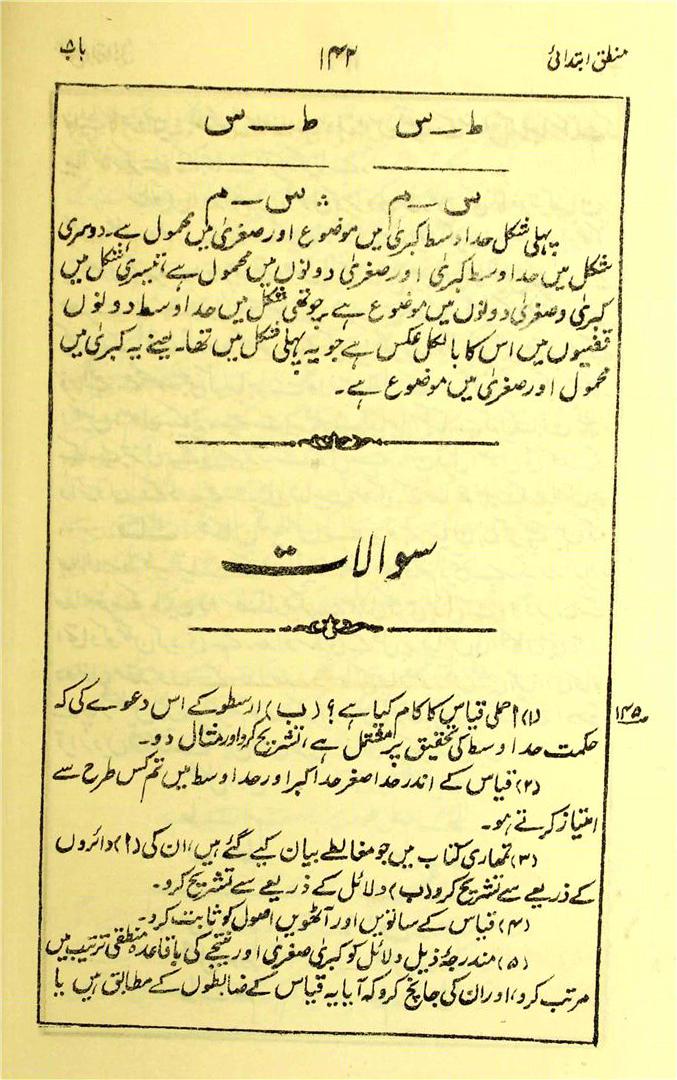 منطق ابتدائی ۱۴۲ باب ۸
ط — س ط — س
س — م ∴ س — م
پہلی شکل حد اوسط کبریٰ میں موضوع اور صغریٰ میں محمول ہے۔ دوسری
شکل میں حد اوسط کبریٰ اور صغریٰ دونوں میں محمول ہے، تیسری شکل میں
کبریٰ و صغریٰ دونوں میں موضوع ہے۔ چوتھی شکل میں حد اوسط دونوں
قضیوں میں اس کا بالکل عکس ہے جو یہ پہلی شکل میں تھا۔ یعنے یہ کبریٰ میں
محمول اور صغریٰ میں موضوع ہے۔
سوالات
(۱) ا اصلی قیاس کا کام کیا ہے؟ (ب) ارسطو کے اس دعوے کی کہ
صہ ۱۴۵
حکمت حد اوسط کی تحقیق پر مشتمل ہے، تشریح کرو اور مثال دو۔
(۲) قیاس کے اندر حد اصغر حد اکبر اور حد اوسط میں تم کس طرح سے
امتیاز کرتے ہو۔
(۳) تمھاری کتاب میں جو مغالطے بیان کیے گئے ہیں، ان کی (ا) دائروں
کے ذریعے سے تشریح کرو (ب) دلائل کے ذریعے سے تشریح کرو۔
(۴) قیاس کے ساتویں اور آٹھویں اصول کو ثابت کرو۔
(۵) مندرجۂ ذیل دلائل کو کبریٰ صغریٰ اور نتیجے کی باقاعدہ منطقی ترتیب میں
مرتب کرو، اور ان کی جانچ کرو کہ آیا یہ قیاس کے ضابطوں کے مطابق ہیں یا